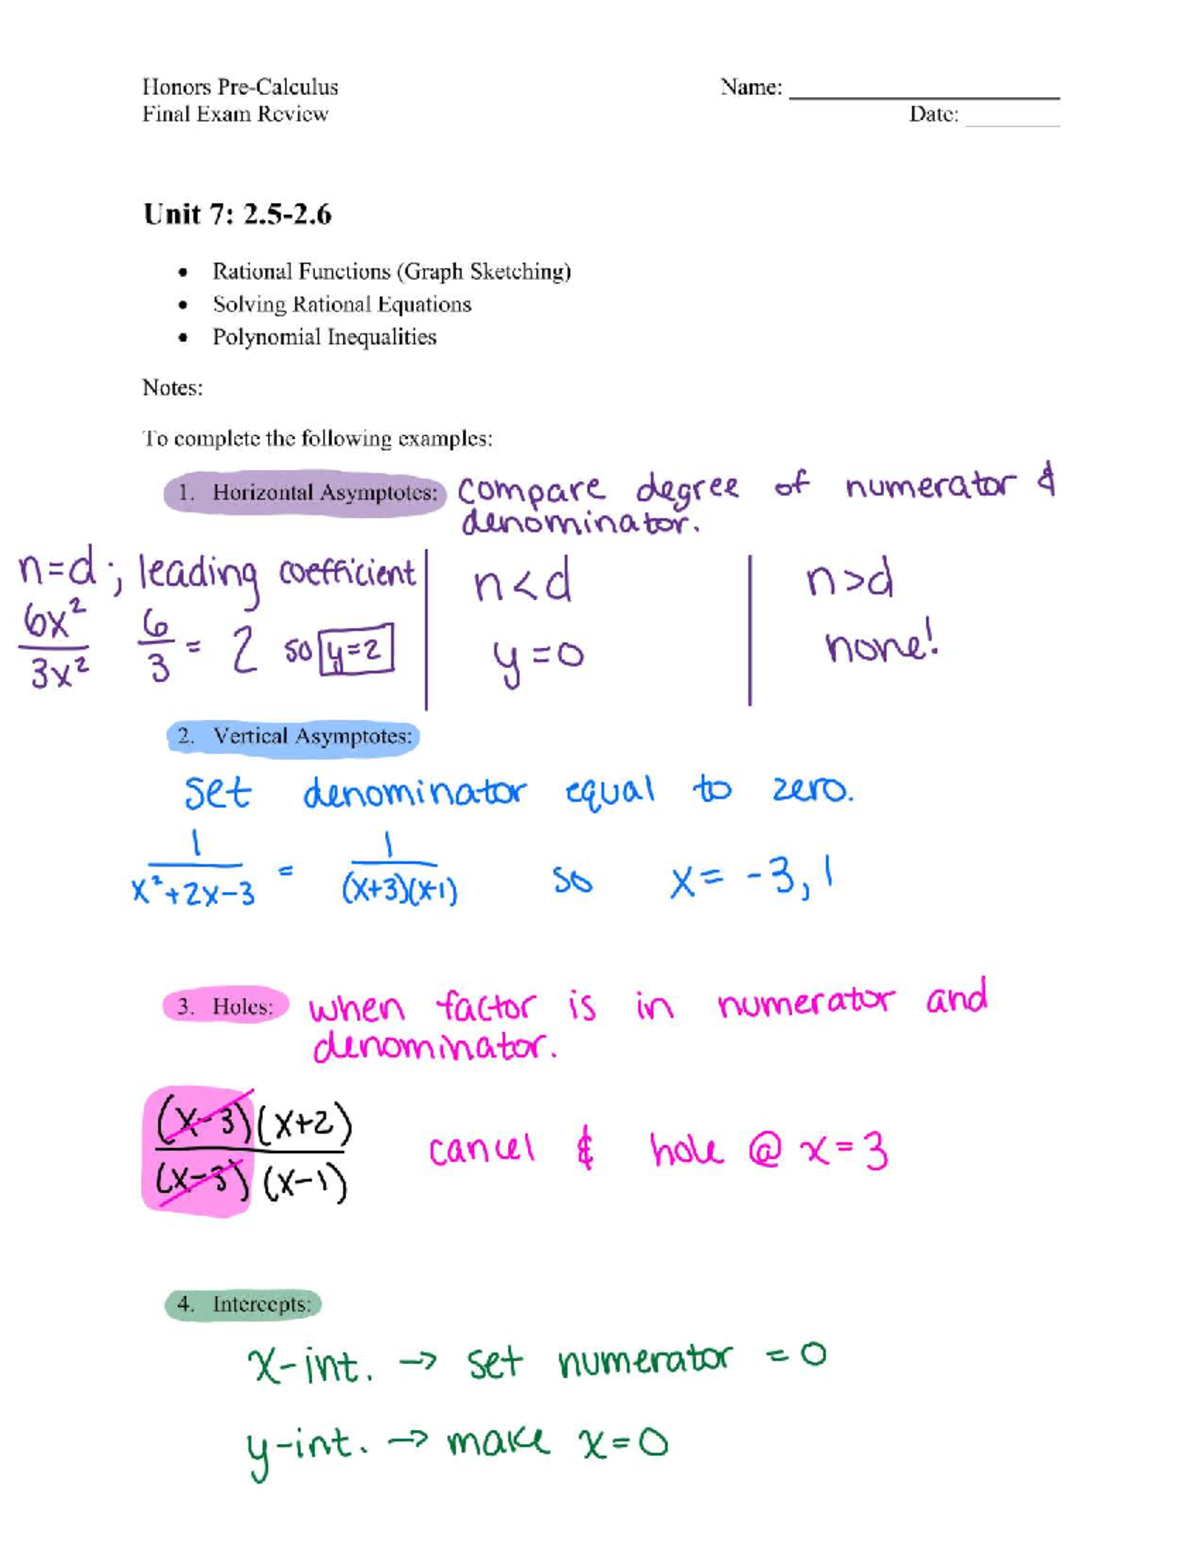 Honors Pre-Calculus
Name: ____________
Final Exam Review
Date: ________
Unit 7: 2.5-2.6
• Rational Functions (Graph Sketching)
• Solving Rational Equations
• Polynomial Inequalities
Notes:
To complete the following examples:
1. Horizontal Asymptotes: compare degree of numerator &
denominator.
n=d; leading coefficient | n<d | n>d
6x²/3x² 6/3 = 2 so y=2 | y=0 | none!
2. Vertical Asymptotes:
set denominator equal to zero.
1/(x²+2x-3) = 1/((x+3)(x-1)) so x= -3, 1
3. Holes: when factor is in numerator and
denominator.
(x-3)(x+2)
(x-3)(x-1) cancel & hole @ x=3
4. Intercepts:
x-int. → set numerator = 0
y-int. → make x=0